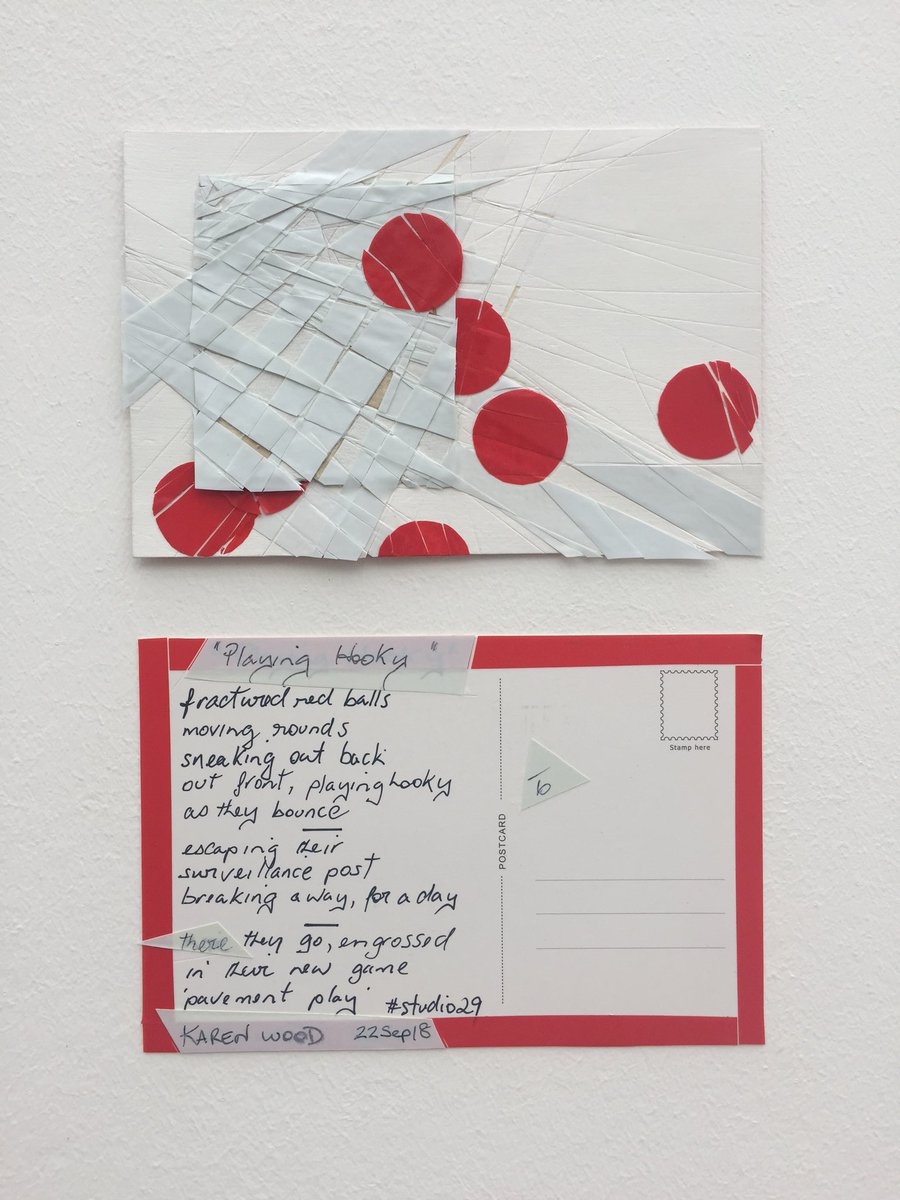 "Playing Hooky"
fractured red balls
moving rounds
sneaking out back
out front, playing hooky
as they bounce
escaping their
surveillance post
breaking away, for a day
there they go, engrossed
in their new game
'pavement play' #studio29
KAREN WOOD 22Sep18
POSTCARD
Stamp here